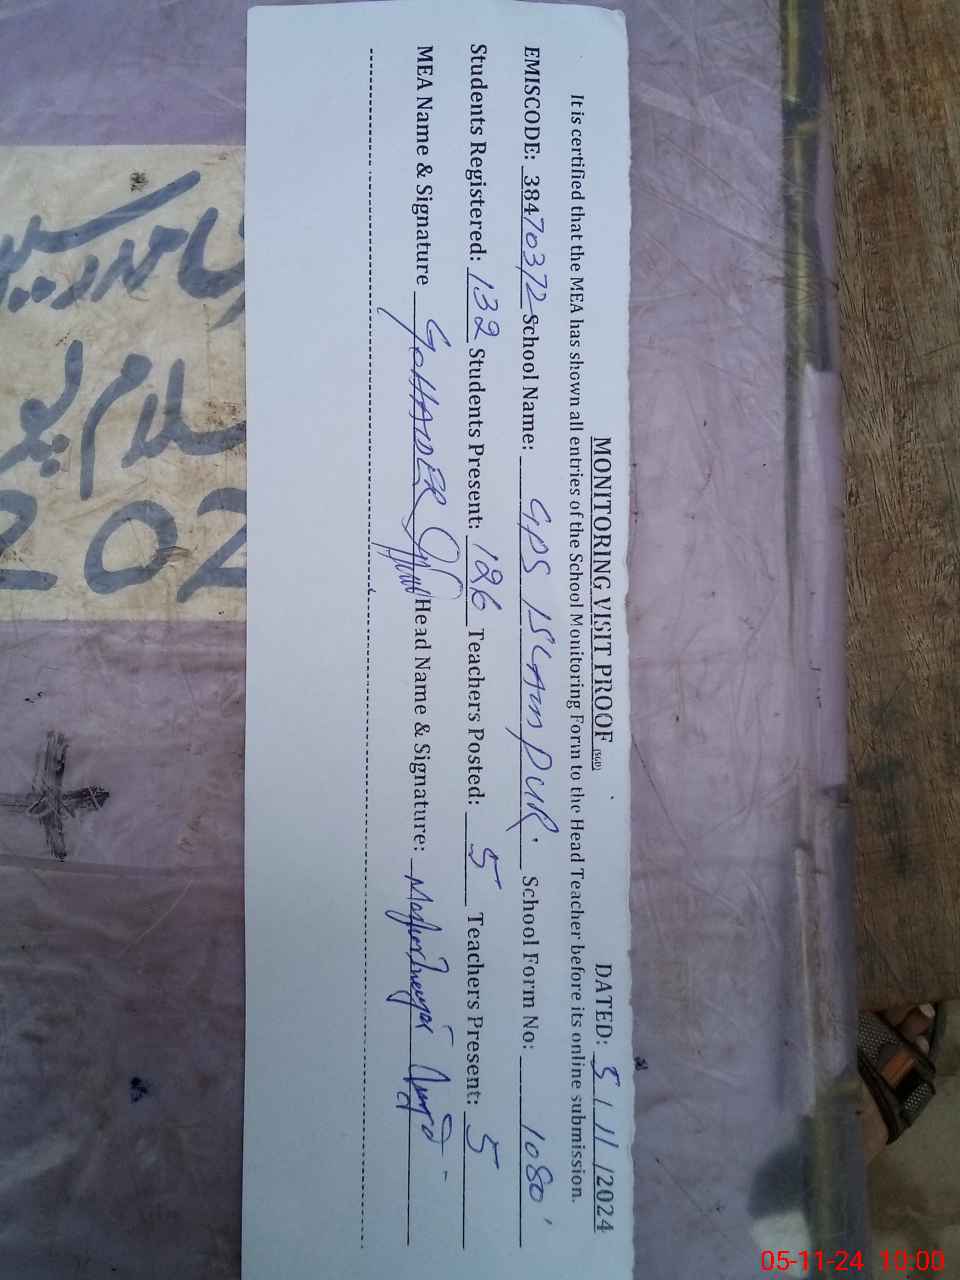 MONITORING VISIT PROOF (SGD) DATED: 5/11/2024
It is certified that the MEA has shown all entries of the School Monitoring Form to the Head Teacher before its online submission.
EMISCODE: 38470372 School Name: GPS ISLAM PUR. School Form No: 1080
Students Registered: 132 Students Present: 126 Teachers Posted: 5 Teachers Present: 5
MEA Name & Signature Head Name & Signature:
سلام پور
202
05-11-24 10:00